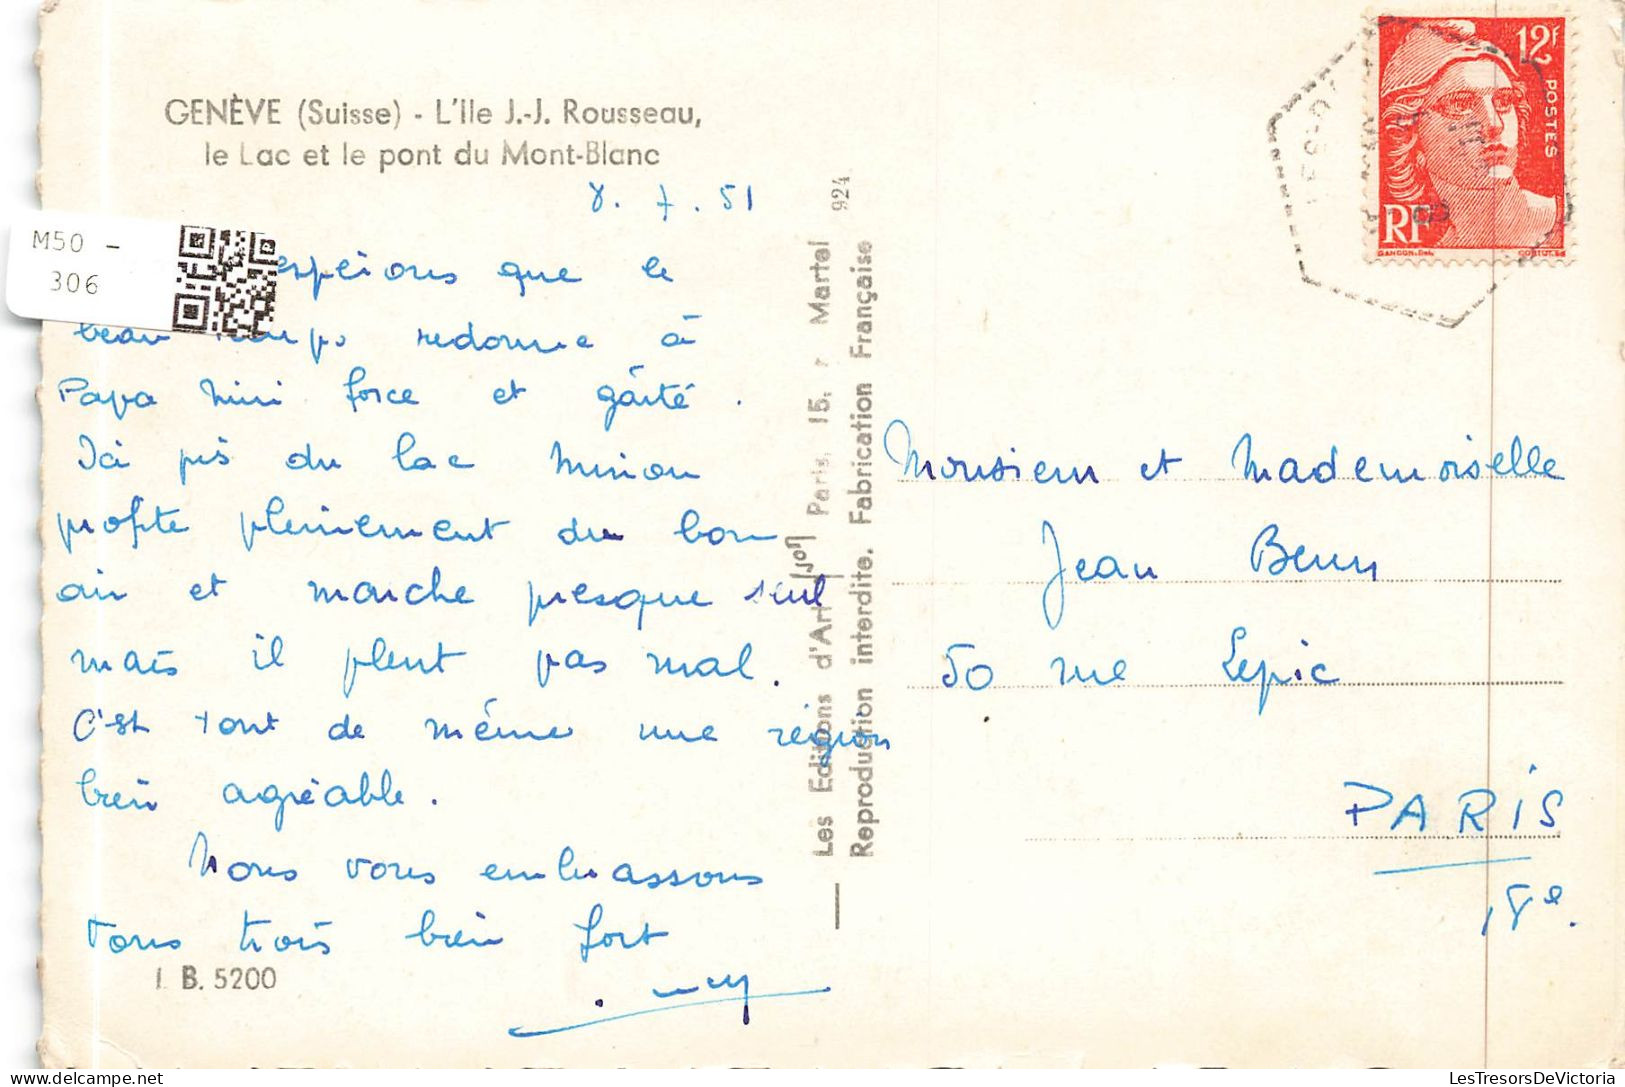 GENÈVE (Suisse) - L'Ile J.-J. Rousseau,
le Lac et le pont du Mont-Blanc
8.7.51
M50 -
306
espérons que le
beau temps redonne à
Papa Mini force et gaîté.
Ici près du lac Minou
profite pleinement du bon
air et marche presque seul
mais il pleut pas mal.
C'est tout de même une région
bien agréable.
Nous vous embrassons
tous trois bien fort
I. B. 5200
924
Les Editions d'Art Paris, 15, r Martel
Reproduction interdite. Fabrication Française
12F
POSTES
RF
GANDON.Del.
CORTOT.Sc
Monsieur et Mademoiselle
Jean
50 rue Lepic
PARIS
18e.
LesTresorsDeVictoria